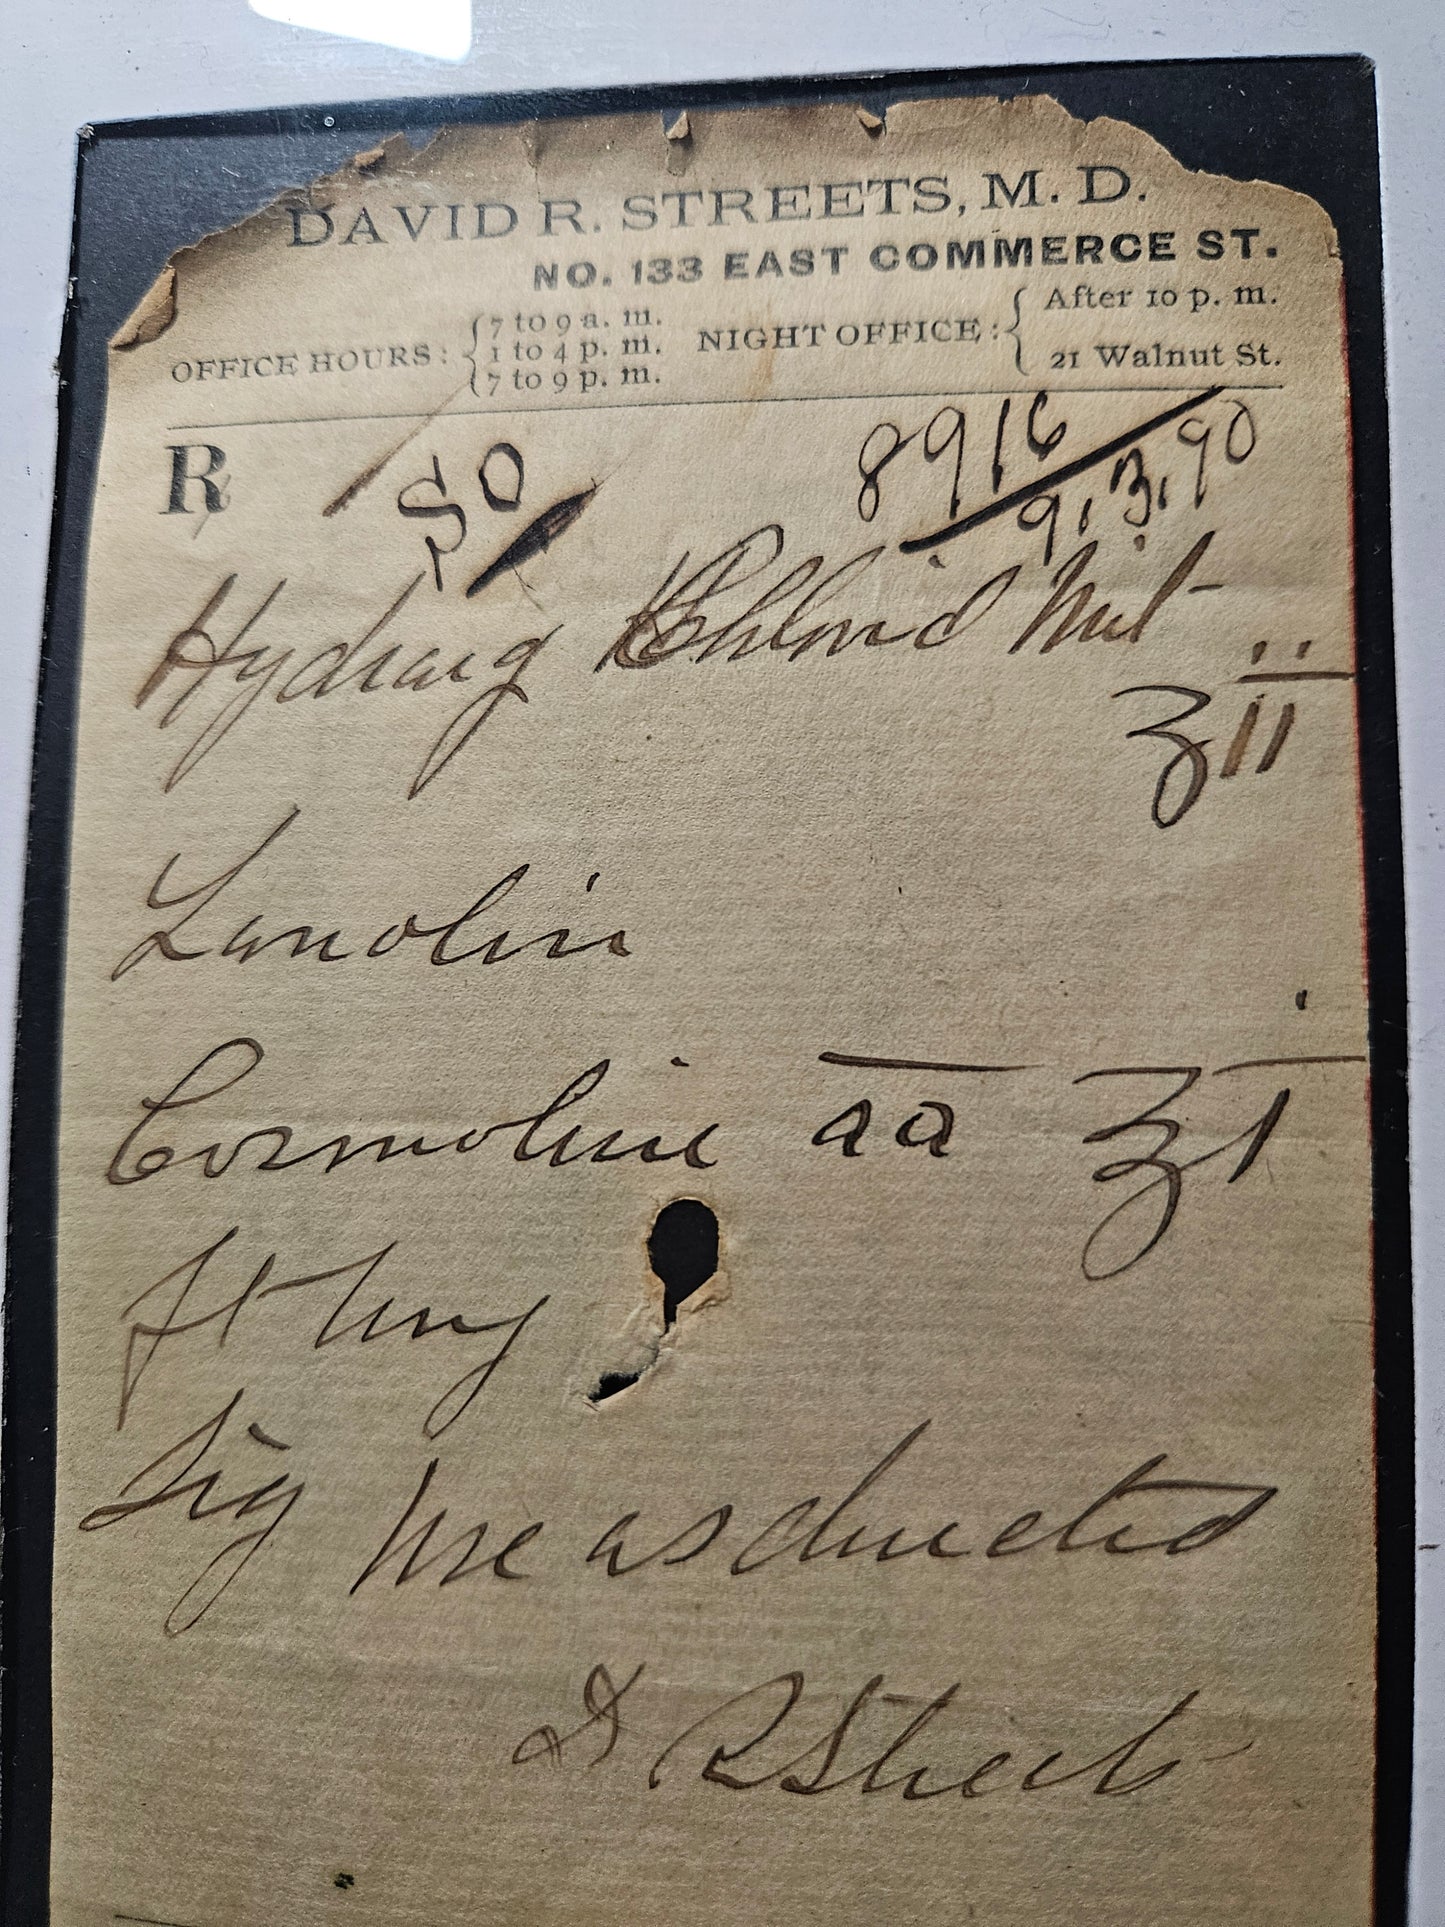 DAVID R. STREETS, M. D.
NO. 133 EAST COMMERCE ST.
OFFICE HOURS: { 7 to 9 a. m.
1 to 4 p. m.
7 to 9 p. m.
NIGHT OFFICE: { After 10 p. m.
21 Walnut St.
R
50
8916
9.3.90
Hydrarg Chlorid Mit
ʒii
Lanolin
Cosmoline aa ʒi
ft ung
Sig Use as directed
D R Streets